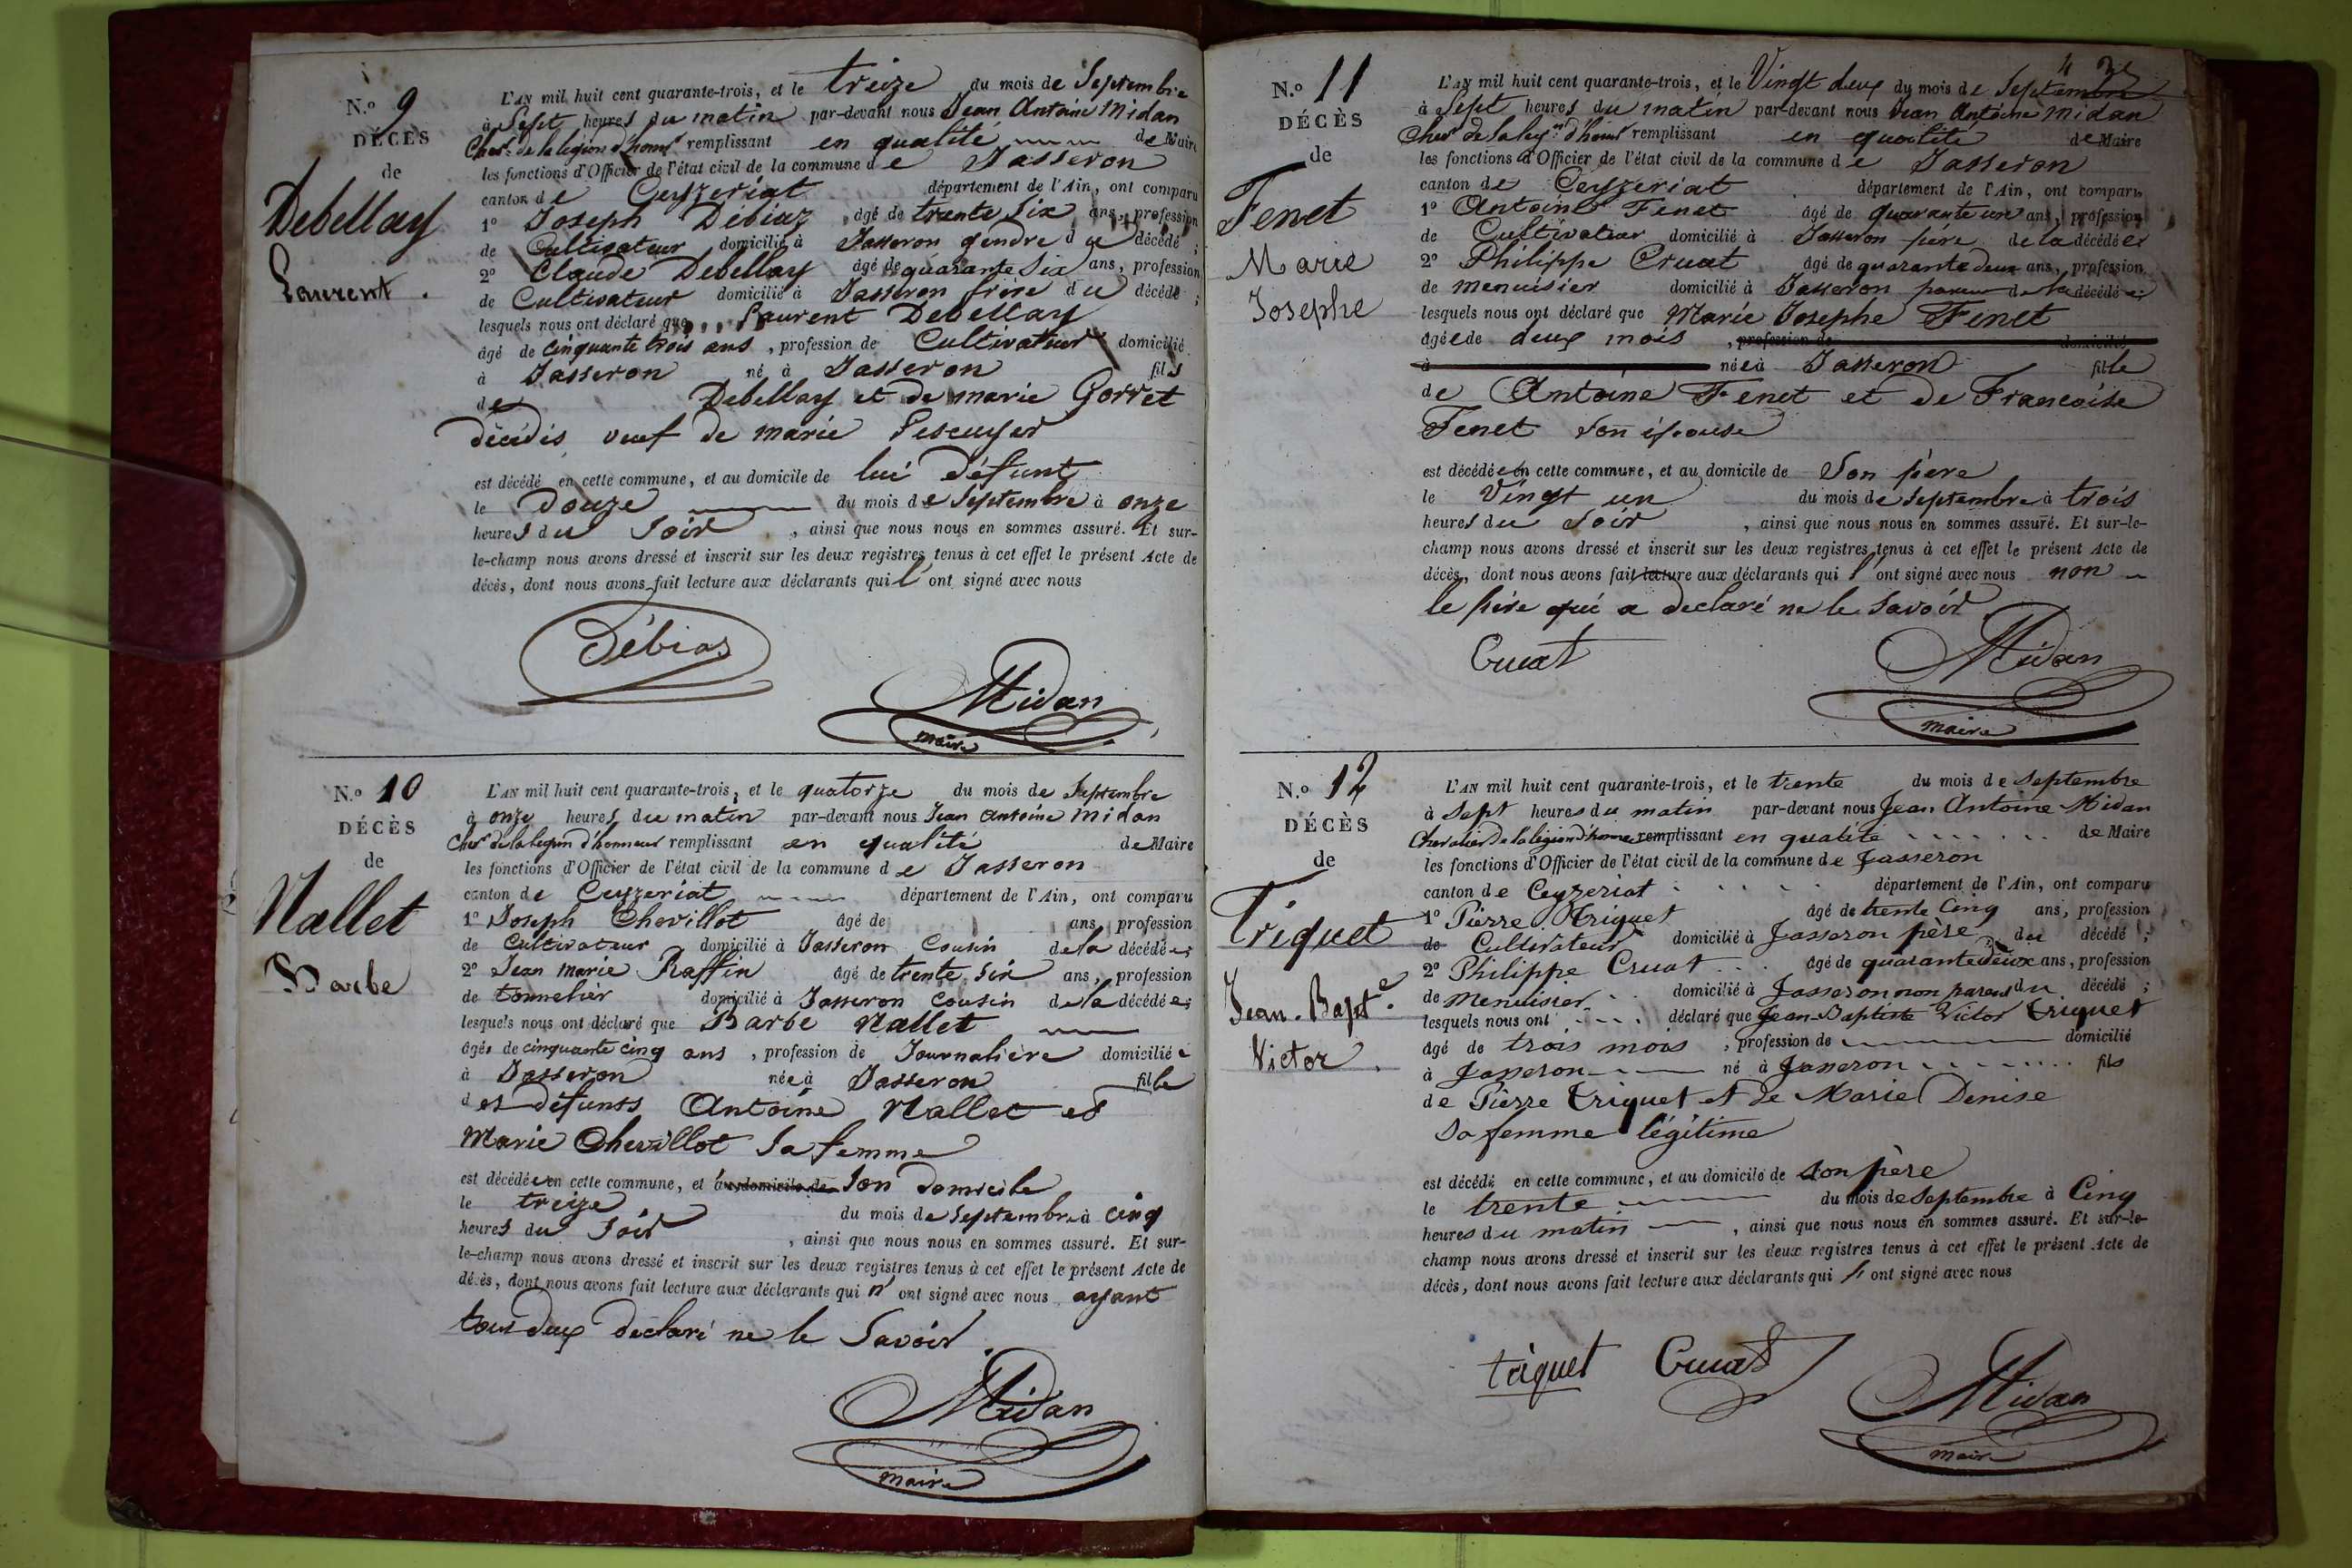 N.o 9
DÉCÈS
de
Debellay
Laurent.
L'AN mil huit cent quarante-trois, et le treize du mois de Septembre
à Sept heures du matin par-devant nous Jean Antoine Midan
Cher de la légion d'honr remplissant en qualité de Maire
les fonctions d'Officier de l'état civil de la commune de Jasseron
canton de Ceyzeriat département de l'Ain, ont comparu
1o Joseph Débiaz âgé de trente Six ans, profession
de Cultivateur domicilié à Jasseron gendre d ce décédé ;
2o Claude Debellay âgé de quarante Six ans, profession
de Cultivateur domicilié à Jasseron frère du décédé ;
lesquels nous ont déclaré que Laurent Debellay
âgé de cinquante trois ans, profession de Cultivateur domicilié
à Jasseron né à Jasseron fils
de Debellay et de marie Gorret
décédés veuf de marie Lescuyer
est décédé en cette commune, et au domicile de lui défunt
le Douze du mois de Septembre à onze
heures du Soir, ainsi que nous nous en sommes assuré. Et sur-
le-champ nous avons dressé et inscrit sur les deux registres tenus à cet effet le présent Acte de
décès, dont nous avons fait lecture aux déclarants qui l' ont signé avec nous
Débiaz
Midan
maire
N.o 10
DÉCÈS
de
Nallet
Barbe
L'AN mil huit cent quarante-trois, et le quatorze du mois de Septembre
à onze heures du matin par-devant nous Jean Antoine Midan
Cher de la legion d'honneur remplissant en qualité de Maire
les fonctions d'Officier de l'état civil de la commune de Jasseron
canton de Ceyzeriat département de l'Ain, ont comparu
1o Joseph Chevillot âgé de ans, profession
de Cultivateur domicilié à Jasseron Cousin de la décédée ;
2o Jean marie Raffin âgé de trente Six ans, profession
de tonnelier domicilié à Jasseron Cousin de la décédée ;
lesquels nous ont déclaré que Barbe Nallet
âgée de cinquante cinq ans, profession de Journalière domiciliée
à Jasseron née à Jasseron fille
des défunts Antoine Nallet et
Marie Chevillot Sa femme
est décédée en cette commune, et au domicile de Son Domicile
le treize du mois de Septembre à cinq
heures du Soir, ainsi que nous nous en sommes assuré. Et sur-
le-champ nous avons dressé et inscrit sur les deux registres tenus à cet effet le présent Acte de
décès, dont nous avons fait lecture aux déclarants qui n' ont signé avec nous ayant
tous deux déclaré ne le Savoir.
Midan
maire
N.o 11
DÉCÈS
de
Fenet
Marie
Josephe
L'AN mil huit cent quarante-trois, et le Vingt deux du mois de Septembre
à Sept heures du matin par-devant nous Jean Antoine Midan
Cher de la leg.on d'honr remplissant en qualité de Maire
les fonctions d'Officier de l'état civil de la commune de Jasseron
canton de Ceyzeriat département de l'Ain, ont comparu
1o Antoine Fenet âgé de quarante un ans, profession
de Cultivateur domicilié à Jasseron père de la décédée ;
2o Philippe Cruat âgé de quarante deux ans, profession
de menuisier domicilié à Jasseron parent de la décédée ;
lesquels nous ont déclaré que Marie Josephe Fenet
âgée de deux mois, profession de domicilié
à née à Jasseron fille
de Antoine Fenet et de Françoise
Fenet Son épouse
est décédée en cette commune, et au domicile de Son père
le Vingt un du mois de Septembre à trois
heures du Soir, ainsi que nous nous en sommes assuré. Et sur-le-
champ nous avons dressé et inscrit sur les deux registres tenus à cet effet le présent Acte de
décès, dont nous avons fait lecture aux déclarants qui l' ont signé avec nous non
le père qui a declaré ne le Savoir
Cruat
Midan
maire
N.o 12
DÉCÈS
de
Triquet
Jean-Bapte
Victor.
L'AN mil huit cent quarante-trois, et le trente du mois de Septembre
à Sept heures du matin par-devant nous Jean Antoine Midan
Chevalier de la légion d'honneur remplissant en qualité de Maire
les fonctions d'Officier de l'état civil de la commune de Jasseron
canton de Ceyzeriat département de l'Ain, ont comparu
1o Pierre Triquet âgé de trente Cinq ans, profession
de Cultivateur domicilié à Jasseron père du décédé ;
2o Philippe Cruat âgé de quarante deux ans, profession
de Menuisier domicilié à Jasseron non parent du décédé ;
lesquels nous ont déclaré que Jean-Baptiste Victor Triquet
âgé de trois mois, profession de domicilié
à Jasseron né à Jasseron fils
de Pierre Triquet et de Marie Denise
sa femme légitime
est décédé en cette commune, et au domicile de son père
le trente du mois de Septembre à Cinq
heures du matin, ainsi que nous nous en sommes assuré. Et sur-le-
champ nous avons dressé et inscrit sur les deux registres tenus à cet effet le présent Acte de
décès, dont nous avons fait lecture aux déclarants qui l' ont signé avec nous
triquet Cruat
Midan
maire